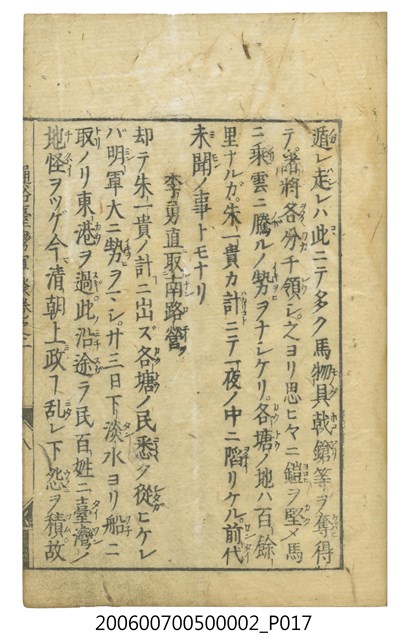 遁レ走レハ此ニテ多ク馬物具戟鎗等ヲ奪得
テ諸將各分チ領シ之ヨリ思ヒ〳〵ニ鎧ヲ堅メ馬
ニ乘雲ニ騰ルノ勢ヲナシケリ各塘ノ地ハ百餘
里ナルガ朱一貴カ計ニテ一夜ノ中ニ陷リケル前代
未聞ノ事トモナリ
李勇直取南路營
却テ朱一貴ノ計ニ出ズ各塘ノ民悉ク從ヒケレ
バ明軍大ニ勢ヲ下シ廿三日下淡水ヨリ船ニ
取ノリ東港ヲ過此沿途ラ民百姓ニ臺灣ノ
地怪ヲツゲ今清朝上政ヿ乱レ下怨ヲ積故
200600700500002_P017